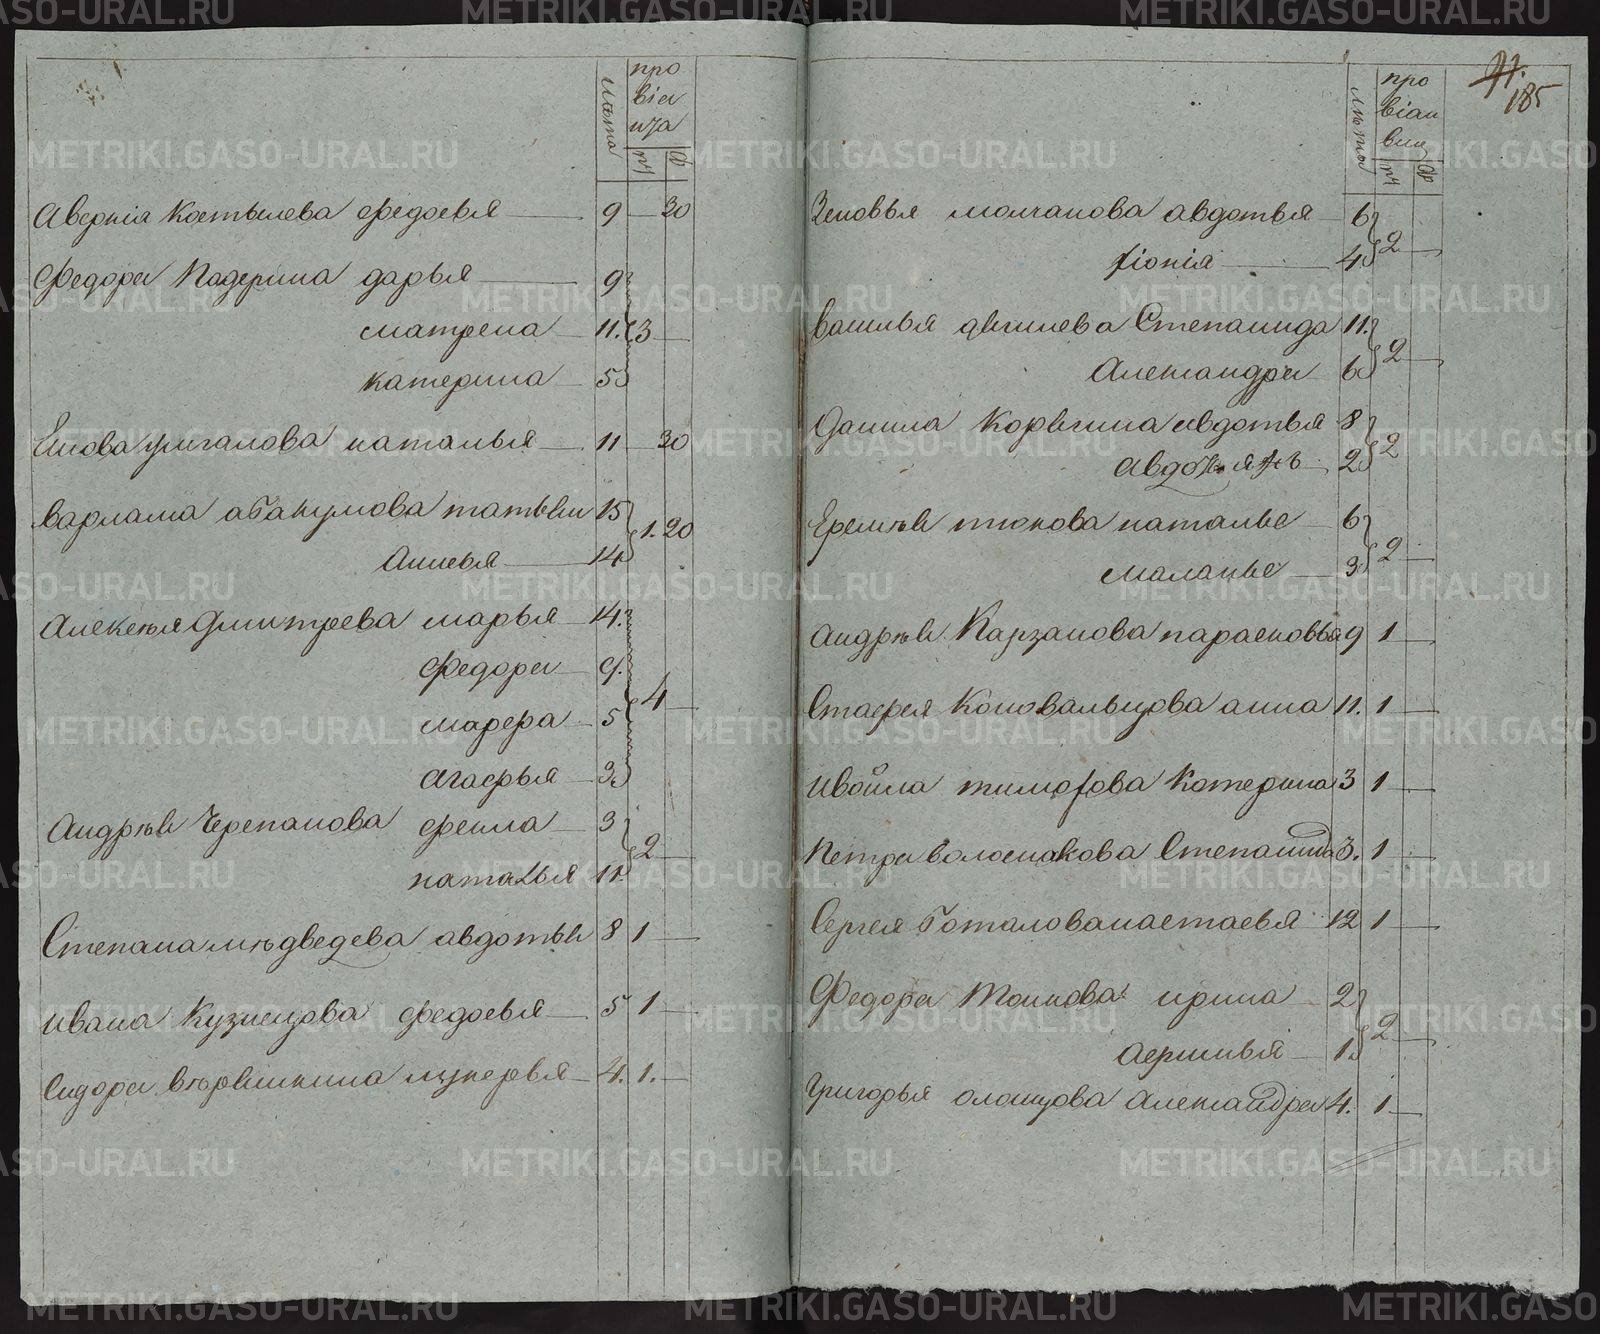 лѣта
про
віа
нта
пу
ф
Аверкія Костылева федосья 9 30
Федора Падерина дарья 9
матрена 11. 3
катерина 5
наталья 11 30
варлама абакумова татьян 15
Анисья 14 1. 20
Алексѣя Дмитрева марья 14.
федора 9.
марфа 5 4
агафья 3
Андрѣя Черепанова фекла 3
наталья 11 2
Степана мѣдведева авдотья 8 1
ивана Кузнецова федосья 5 1
Сидора лукерья 4. 1.
91.
185
лѣта
про
віан
пу
ф
Зиновья молчанова авдотья 6
фіонія 4 2
василья Степанида 11.
Александра 6 2
Данила Корѣлина авдотья 8
авдотья 2 2
Еремѣя пионова наталье 6
маланье 3 2
андрѣя Карзанова парасковья 9 1
Стафея Коновальцова анна 11. 1
ивойла тимофова Катерина 3 1
петра волоснакова Степанида 3. 1
Сергея Боталова настасья 12 1
Федора ирина 2
афимья 1 2
Григорья Александра 4. 1
METRIKI.GASO-URAL.RU